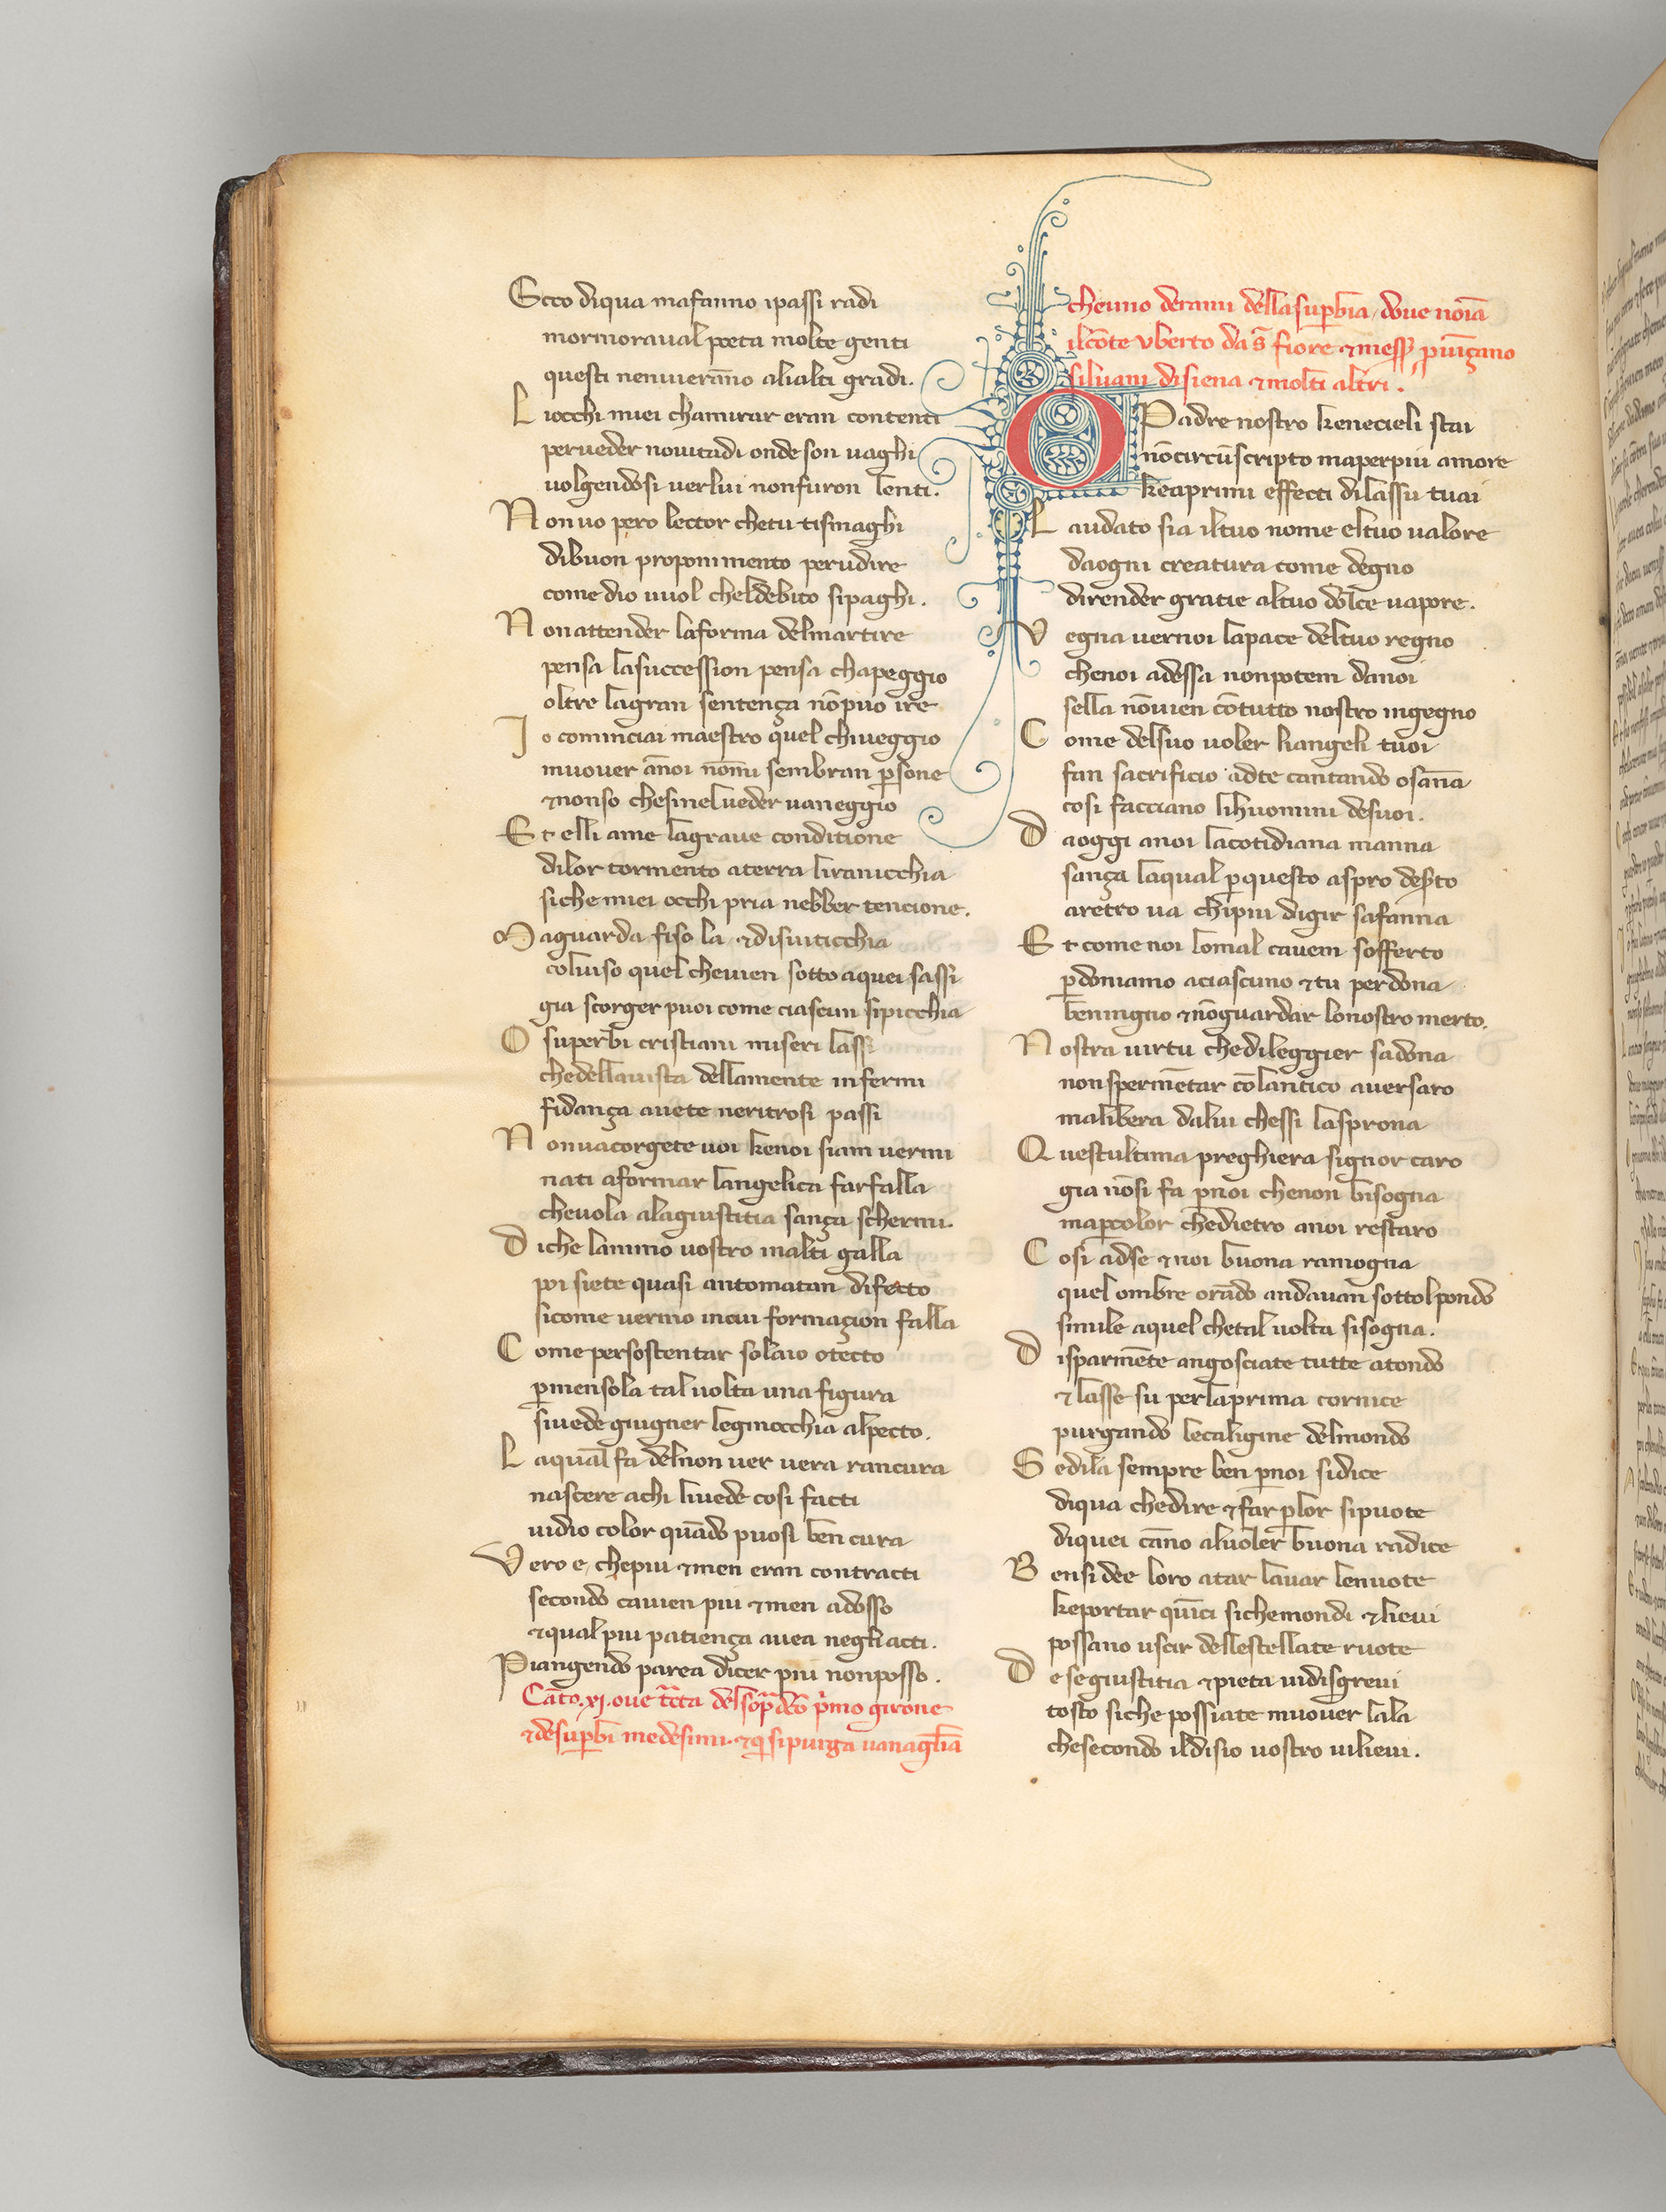 Ecco diqua mafanno ipassi radi
mormoraual poeta molte genti
questi neniuierāno alialti gradi.
Liocchi miei chamirar eran contenti
perueder nouitadi onde son uaghi
uolgendosi uerlui nonfuron lenti.
Nonuo pero lector chetu tismaghi
dibuon proponimento perudire
come dio uuol cheldebito sipaghi.
Nonattender laforma delmartire
pensa lasuccession pensa chapeggio
oltre lagran sentença nōpuo ire
Io cominciai maestro quel chiueggio
muouer ānoi nōmi sembran psone
⁊nonso chesinelueder uaneggio
Et elli ame lagraue conditione
dilor tormento aterra liranicchia
siche miei occhi pria nebber tencione.
Maguarda fiso la ⁊disuiticchia
coluiso quel cheuien sotto aquei sassi
gia scorger puoi come ciascun sipicchia
O superbi cristiani miseri lassi
chedellauista dellamente infermi
fidança auete neritrosi passi
Nonuacorgete uoi kenoi siam uermi
nati aformar langelica farfalla
cheuola alagiustitia sança schermi.
Diche lanimo uostro inalti galla
poi siete quasi antomatan difecto
sicome uermo incui formaçion falla
Come persostentar solaio otecto
pmensola tal uolta una figura
siuede giugner leginocchia alpecto.
Laqual fa delnon uer uera rancura
nascere achi liuede cosi facti
uidio color quādo puosi ben cura
Vero e, chepiu ⁊men eran contracti
secondo cauien piu ⁊men adosso
⁊qual piu patiença auea negliacti.
Piangendo parea dicer piu nonposso.
Cāto.xj.oue trēta delsopͣ dcō pͥmo girone
⁊desuꝑbi medesimi. ⁊qͥ sipurga uanaglīa
cheuno derami dellasuꝑbia, doue noīa
ilcōte vberto da ŝ fiore ⁊mess̄ ꝓuēçano
siluani disiena ⁊molti altri.
O Padre nostro kenecieli stai
nōcircūscripto maperpiu amore
keaprimi effecti dilassu tuai
Laudato sia iltuo nome eltuo ualore
daogni creatura come degno
dirender gratie altuo dolce uapore.
Vegna uernoi lapace deltuo regno
chenoi adessa nonpotem danoi
sella nōuien cōtutto nostro ingegno
Come delsuo uoler liangeli tuoi
fan sacrificio adte cantando osāna
cosi facciano lihuomini desuoi.
Daoggi anoi lacotidiana manna
sança laqual ꝑquesto aspro deserto
aretro ua chipiu digir safanna
Et come noi lomal cauem sofferto
ꝑdoniamo aciascuno ⁊tu perdona
beningno ⁊nōguardar lonostro merto.
Nostra uirtu chedileggier sadona
nonspermētar cōlantico auersaro
malibera dalui chessi lasprona
Questultima preghiera signor caro
gia nōsi fa ꝑnoi chenon bisogna
maꝑcolor chedietro anoi restaro
Cosi adse ⁊noi buona ramogna
quel ombre orādo andauan sottolpondo
simile aquel chetal uolta sisogna.
Disparmēte angosciate tutte atondo
⁊lasse su perlaprima cornice
purgando lecaligine delmondo
Sedila sempre ben ꝑnoi sidice
diqua chedire ⁊far ꝑlor sipuote
diquei cāno aluoler buona radice
Bensidee loro atar lauar lenuote
keportar quīci sichemondi ⁊lieui
possano uscir dellestellate ruote
De segiustitia ⁊pieta uidisgreui
tosto siche possiate muouer lala
chesecondo ildisio uostro uilieui.